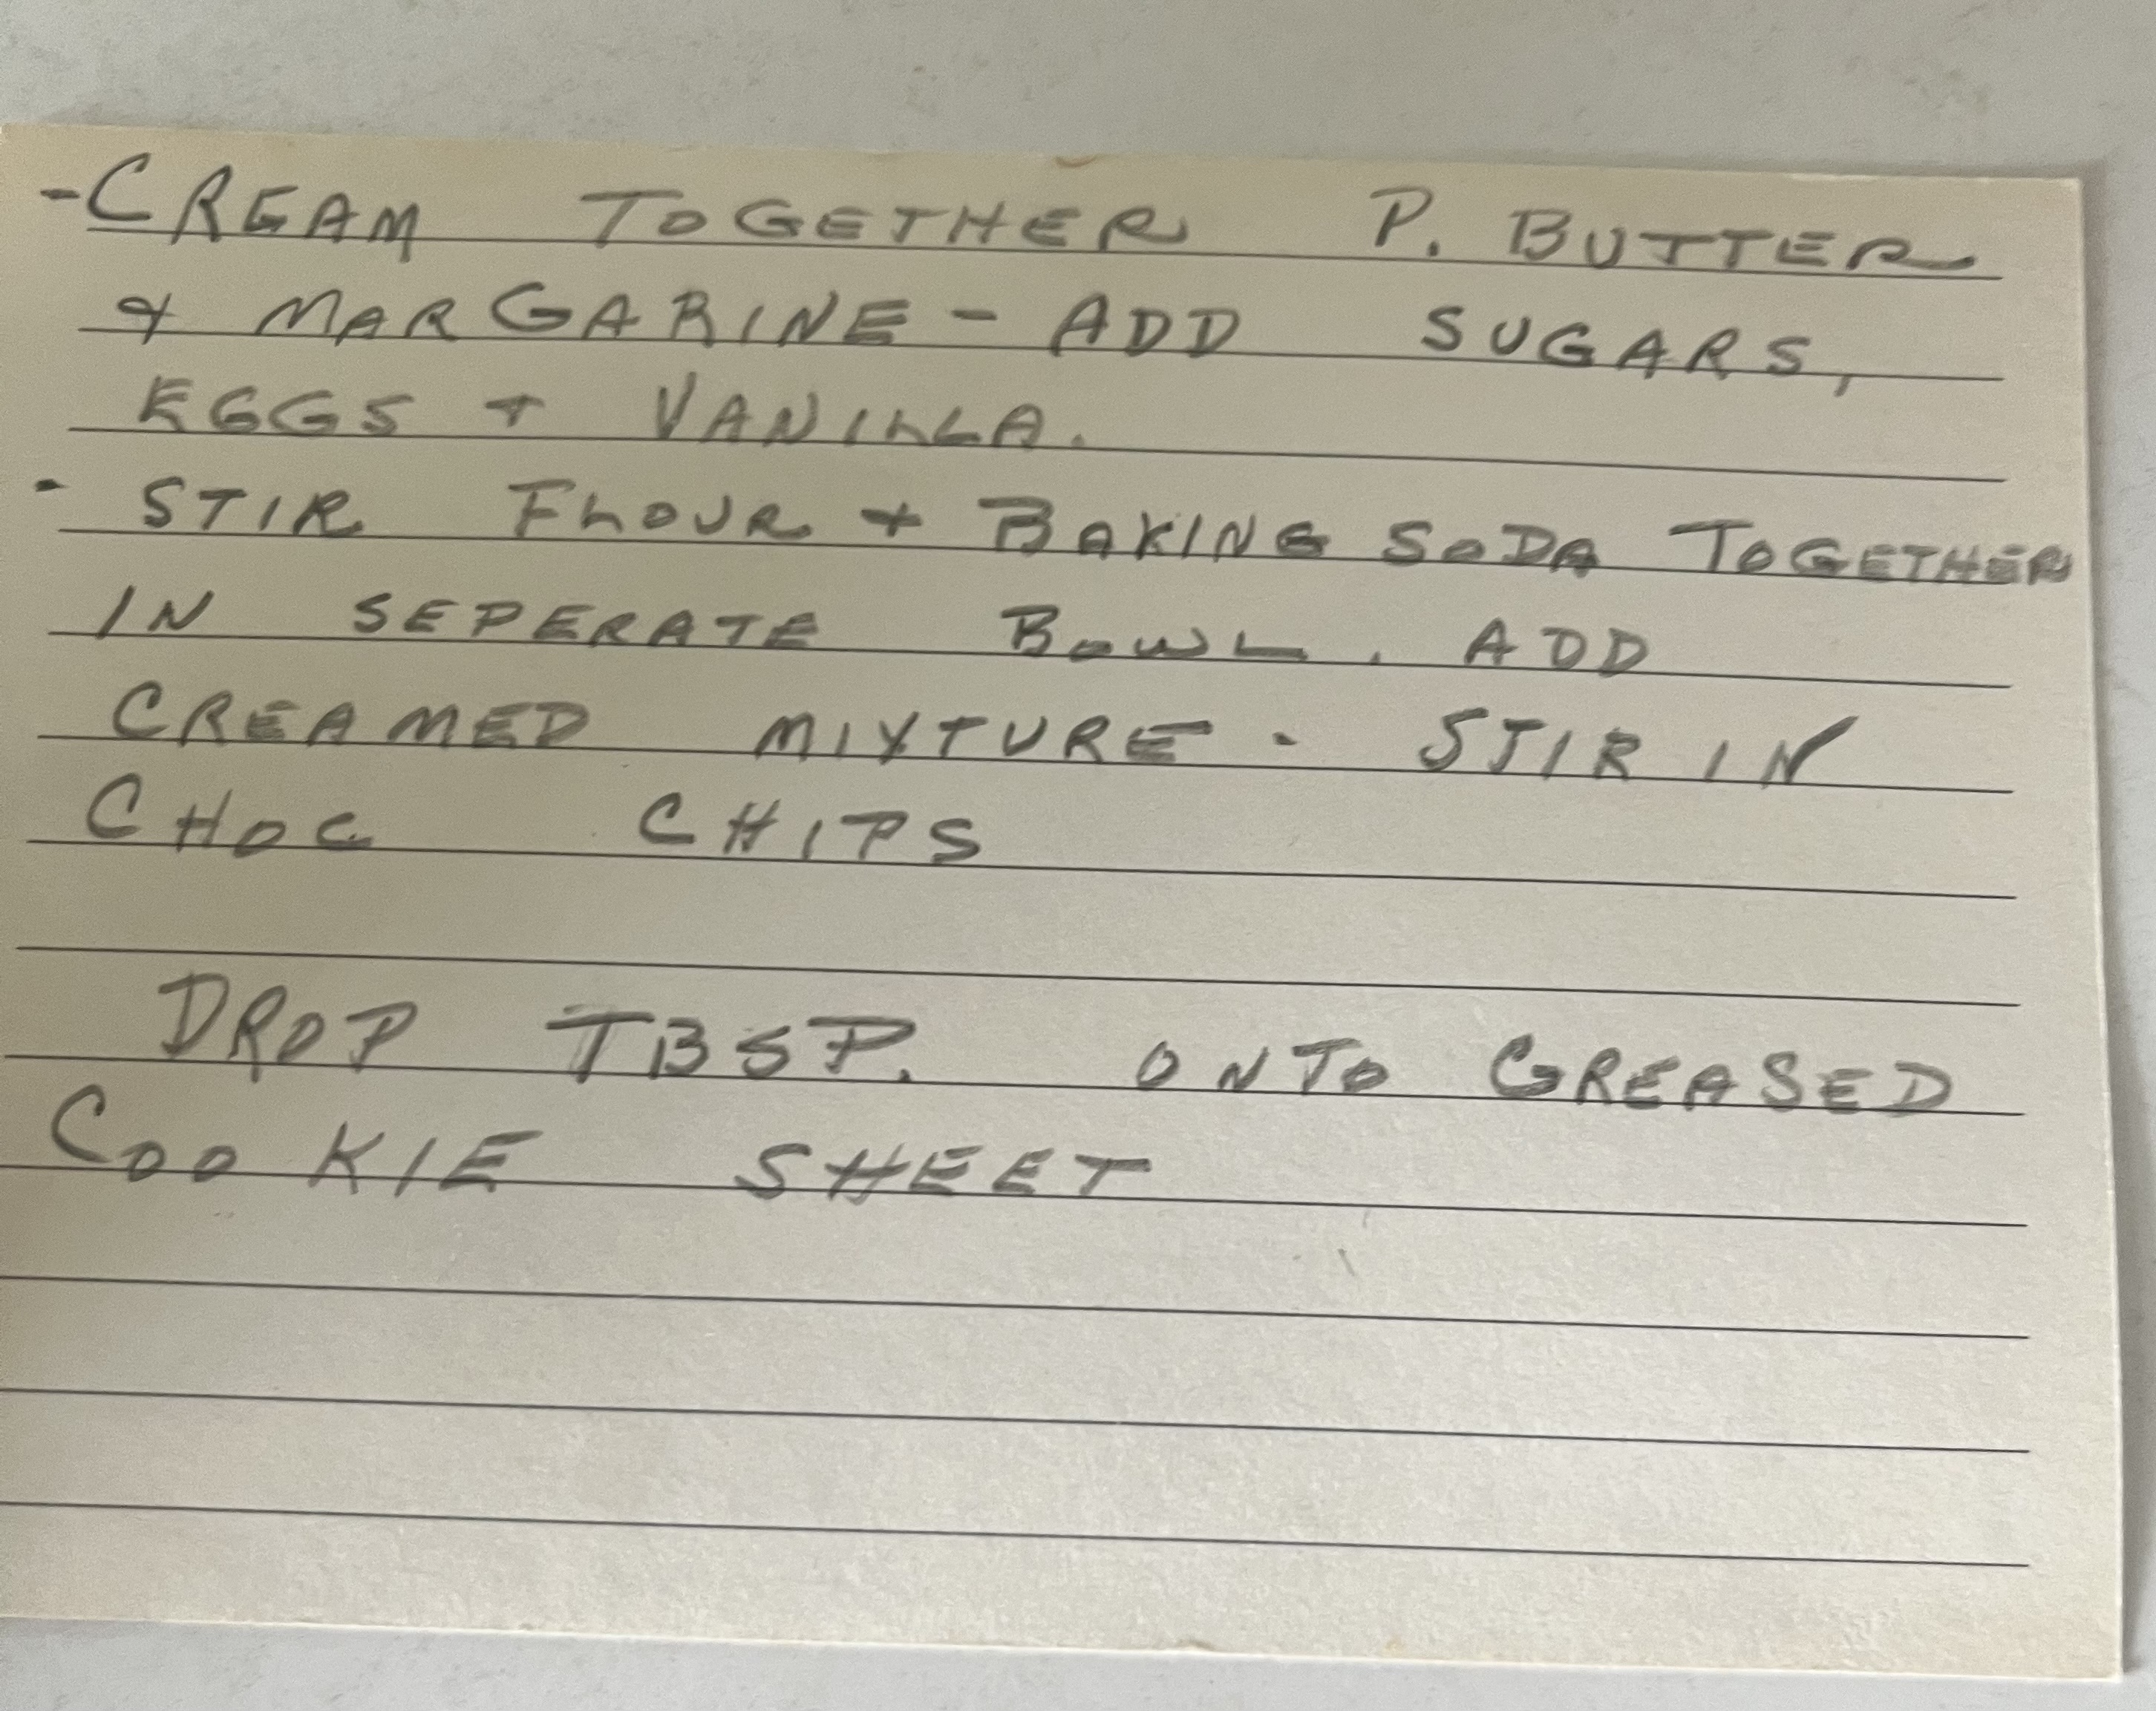 -CREAM TOGETHER P. BUTTER
& MARGARINE - ADD SUGARS,
EGGS + VANILLA.
- STIR FLOUR + BAKING SODA TOGETHER
IN SEPERATE BOWL. ADD
CREAMED MIXTURE - STIR IN
CHOC CHIPS
DROP TBSP. ONTO GREASED
COOKIE SHEET